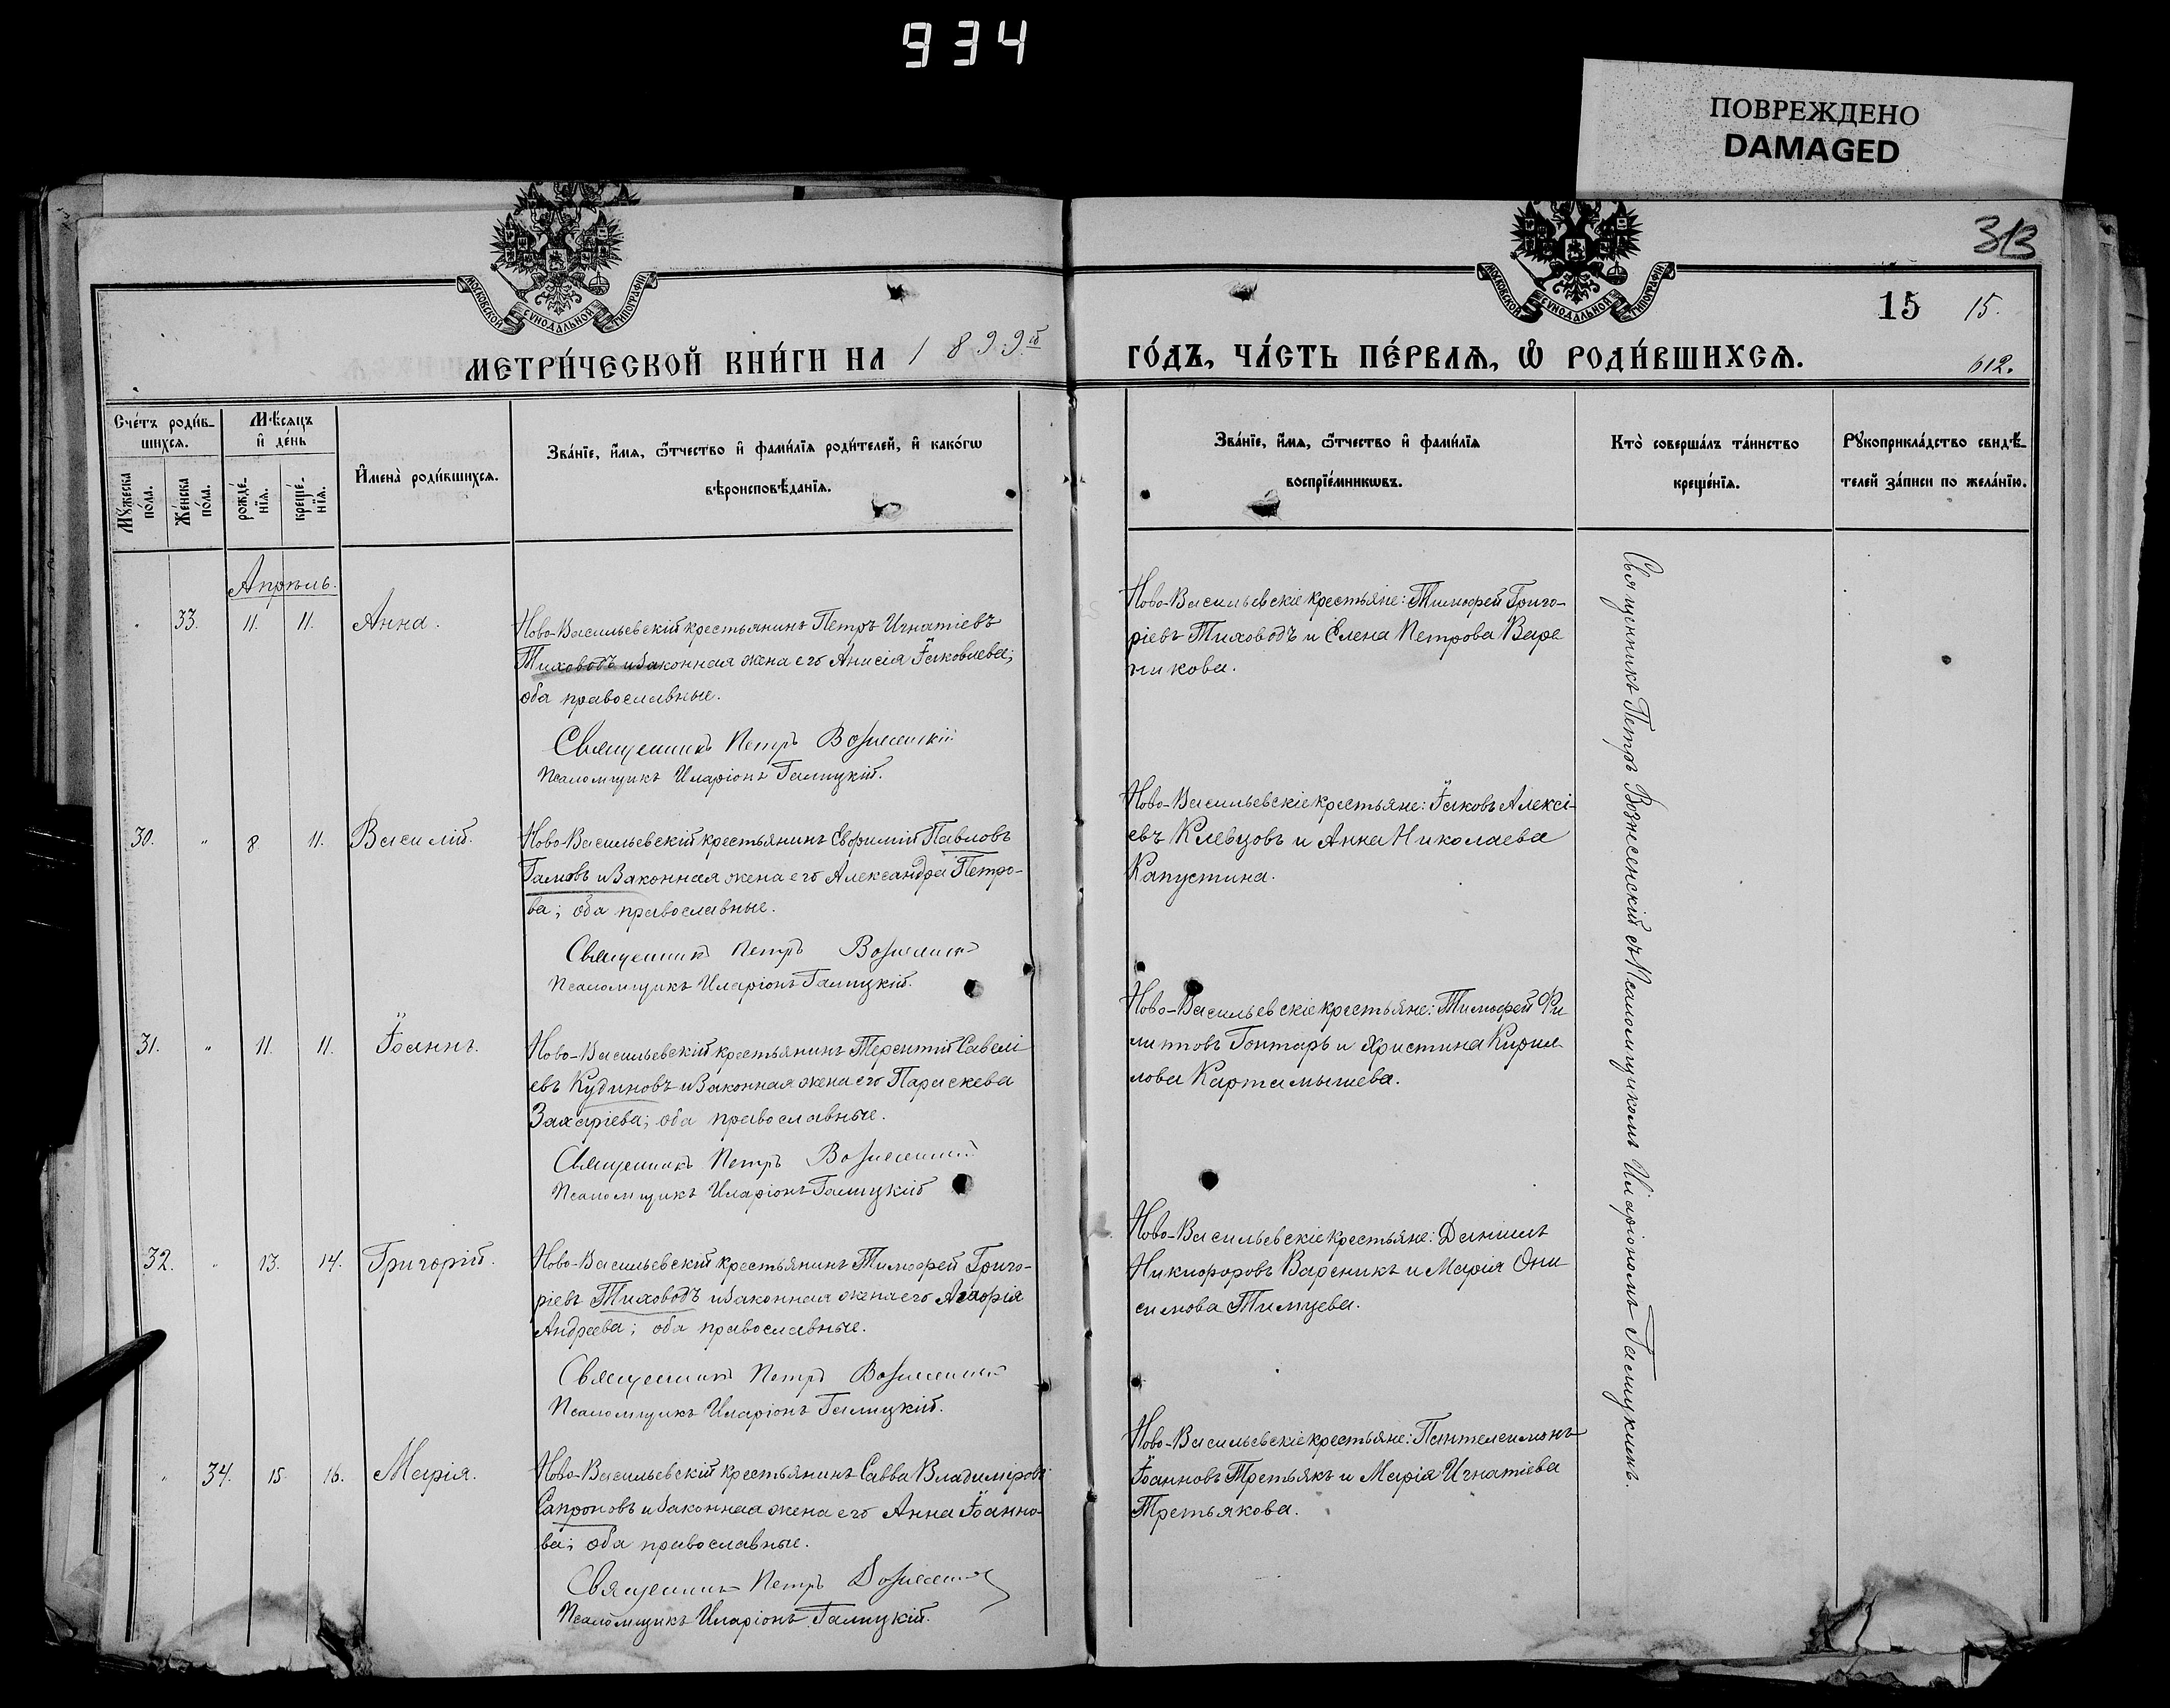 934
ПОВРЕЖДЕНО
DAMAGED
313
МОСКОВСКОЙ СѴНОДАЛЬНОЙ ТИПОГРАФІИ
МОСКОВСКОЙ СѴНОДАЛЬНОЙ ТИПОГРАФІИ
15 15.
МЕТРИ́ЧЕСКОЙ КНИ́ГИ НА 1899й
ГО́ДЪ, ЧА́СТЬ ПЕ́РВАѦ, Ѡ҆ РОДИ́ВШИХСѦ.
612.
Сче́тъ роди́в-
шихсѧ.
Мꙋ́жеска по́ла.
Же́нска по́ла.
Мѣ́сѧцъ
и҆ де́нь
рожде́-
нїѧ.
креще́-
нїѧ.
И҆мена̀ роди́вшихсѧ.
Зва́нїе, и҆́мѧ, ѻ҆́тчество и҆ фами́лїѧ роди́телей, и҆ како́гѡ
вѣроисповѣ́данїѧ.
Зва́нїе, и҆́мѧ, ѻ҆́тчество и҆ фами́лїѧ
воспрїе́мникѡвъ.
Кто̀ соверша́лъ та́инство
креще́нїѧ.
Рꙋкоприкла́дство свидѣ́-
телей за́писи по жела́нїю.
Апрѣль.
" 33. 11. 11. Анна.
Ново-Васильевскій крестьянинъ Петръ Игнатіевъ
Тиховодъ и законная жена его Анисія Іаковлева;
оба православные.
Священникъ Петръ Вознесенскій
Псаломщикъ Иларіонъ Галицкій.
Ново-Васильевскіе крестьяне: Тимофей Григо-
ріевъ Тиховодъ и Елена Петрова Варе
никова.
30. " 8 11. Василій.
Ново-Васильевскій крестьянинъ Евфимій Павловъ
Гамовъ и законная жена его Александра Петро-
ва; оба православные.
Священникъ Петръ Вознесенск
Псаломщикъ Иларіонъ Галицкій.
Ново-Васильевскіе крестьяне: Іаковъ Алексі-
евъ Клевцовъ и Анна Николаева
Капустина.
31. " 11. 11. Іоаннъ.
Ново-Васильевскій крестьянинъ Терентій Савелі-
евъ Кудиновъ и законная жена его Параскева
Захаріева; оба православные.
Священникъ Петръ Вознесенскій
Псаломщикъ Иларіонъ Галицкій
Ново-Васильевскіе крестьяне: Тимофей Фи
липповъ Гонтарь и Христина Кирил-
лова Картамышева.
32. " 13. 14. Григорій.
Ново-Васильевскій крестьянинъ Тимофей Григо-
ріевъ Тиховодъ и законная жена его Агафія
Андреева; оба православные.
Священникъ Петръ Вознесенскій
Псаломщикъ Иларіонъ Галицкій.
Ново-Васильевскіе крестьяне: Даніилъ
Никифоровъ Вареникъ и Марія Они
симова Тимцева.
" 34. 15. 16. Марія.
Ново-Васильевскій крестьянинъ Савва Владиміровъ
Сапроновъ и законная жена его Анна Іоанно-
ва; оба православные.
Священникъ Петръ Вознесенск
Псаломщикъ Иларіонъ Галицкій.
Ново-Васильевскіе крестьяне: Пантелеимонъ
Іоанновъ Третьякъ и Марія Игнатіева
Третьякова.
Священникъ Петръ Вознесенскій съ Псаломщикомъ Иларіономъ Галицкимъ.